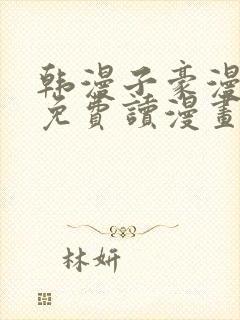 韩漫子豪漫
免費讀漫畫
林妍